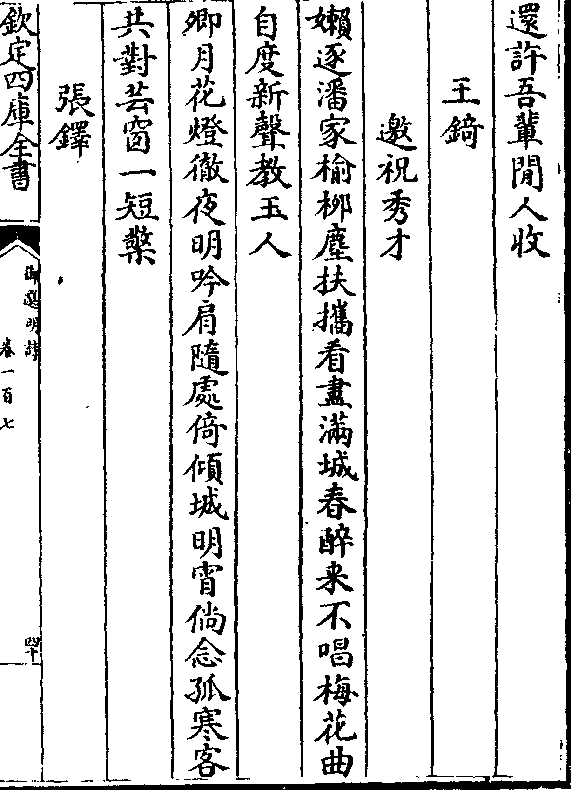 還許吾輩閒人收
王錡
邀祝秀才
嬾逐潘家榆桞塵扶攜看盡滿城春醉来不唱梅花曲
自度新聲教玉人
卿月花燈徹夜明吟肩隨處倚傾城明宵倘念孤寒客
共對芸窗一短檠
張鐸
欽定四庫全書
御選明詩
卷一百七
四十